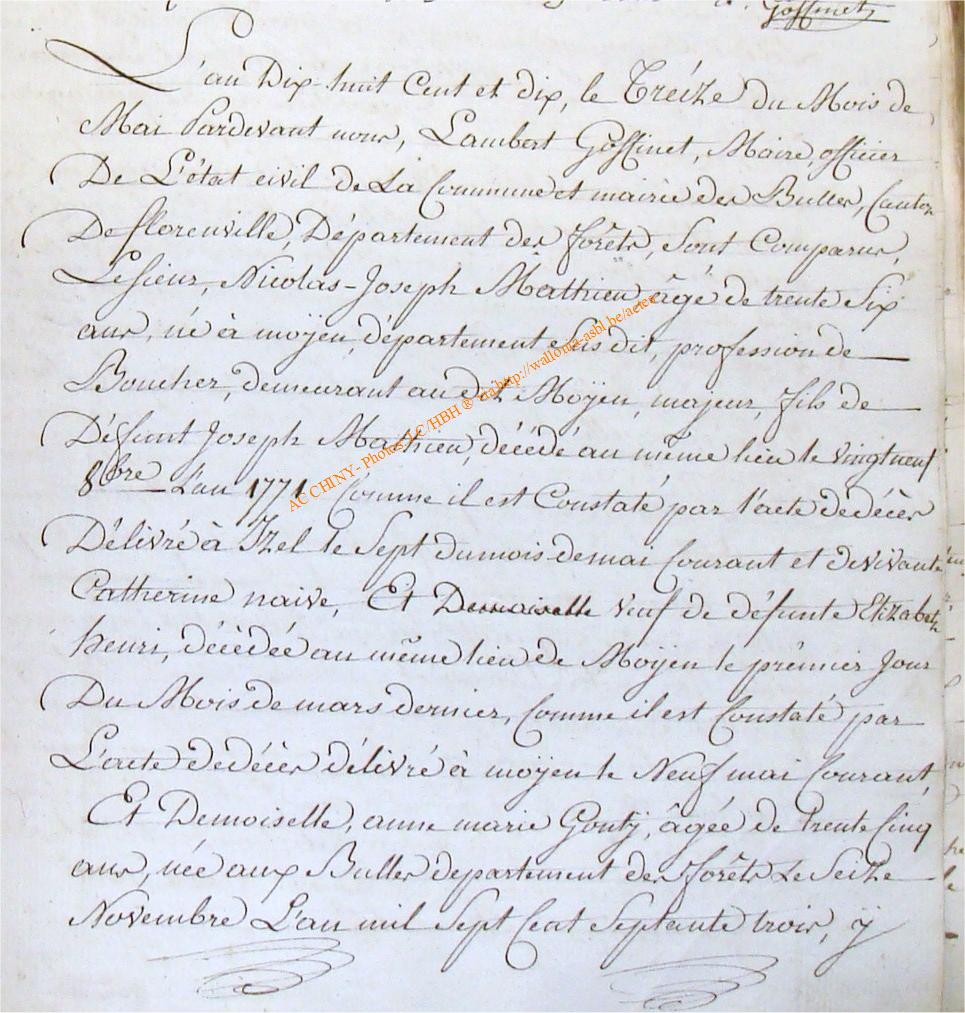 Goffinet
L'an Dix-huit Cent et dix, le Tréize du Mois de
Mai Pardevant nous, Lambert Goffinet, Maire, officier
De L'état civil de La Commune et mairie des Bulles, Canton
De florenville, Département des forêts, Sont Comparus,
Lesieur, Nicolas-Joseph Mathieu, âgé de trente Six
ans, né à moÿen, département Susdit, profession de
Boucher, demeurant au dit Moÿen, majeur, fils de
Défunt Joseph Mathieu, décédé au même lieu le vingtneuf
8bre L'an 1771 Comme il est Constaté par l'acte dedécès
Délivré à Izel le Sept dumois demai Courant et devivante
Catherine naive, Et Demoiselle veuf de défunte Elizabeth
henri, décédée au même lieu de Moÿen le prémier Jour
Du Mois de mars dernier, Comme il est Constaté par
L'acte dedécès délivré à moÿen le Neuf mai Courant,
Et Demoiselle, anne marie Gouty, âgée de trente Cinq
ans, née aux Bulles departement des forêts Le Seize
Novembre L'an mil Sept Cent Septante trois, y
AC CHINY- Photos LC/HBH ® via http://wallonia-asbl.be/actes